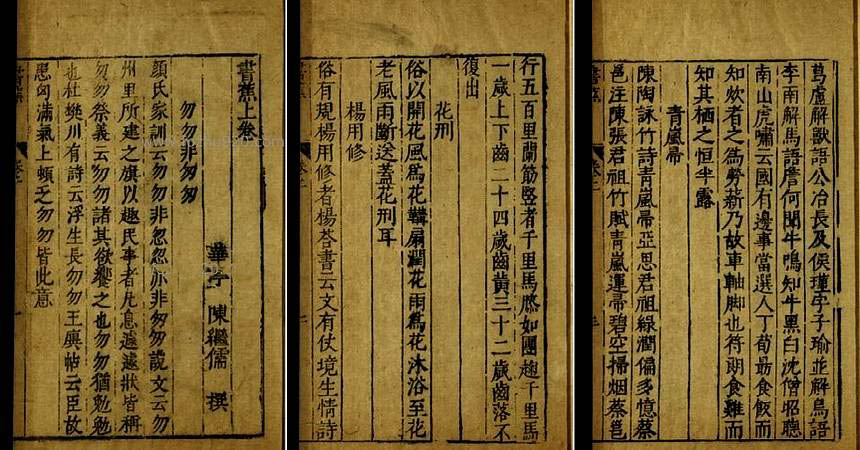 書蕉上卷
華亭 陳繼儒 撰
勿勿非匆匆
顏氏家訓云勿勿非忽忽亦非匆匆說文云勿
州里所建之旗以趣民事者凡息遽遽狀皆稱
勿勿祭義云勿勿諸其欲饗之也勿勿猶勉勉
也杜樊川有詩云浮生長勿勿王廙帖云臣故
患匈滿氣上頓乏勿勿皆此意
行五百里蘭筋竪者千里馬如團趜千里馬
一歲上下齒二十四歲齒黃三十二歲齒落不
復出
花刑
俗以開花風爲花鞴扇潤花雨爲花沐浴至花
老風雨斷送蓋花刑耳
楊用修
俗有規楊用修者楊荅書云文有仗境生情詩
葛盧解獸語公冶長及侯瑾字子瑜並解鳥語
李南解馬語詹何聞牛鳴知牛黑白沈僧昭聰
南山虎嘯云國有邊事當選人丁荀勗食飯而
知炊者之爲勞薪乃故車軸脚也符朗食雞而
知其栖之恒半露
青嵐帚
陳陶詠竹詩青嵐帚亞思君祖綠潤偏多憶蔡
邕注陳張君祖竹賦青嵐運帚碧空掃烟蔡邕